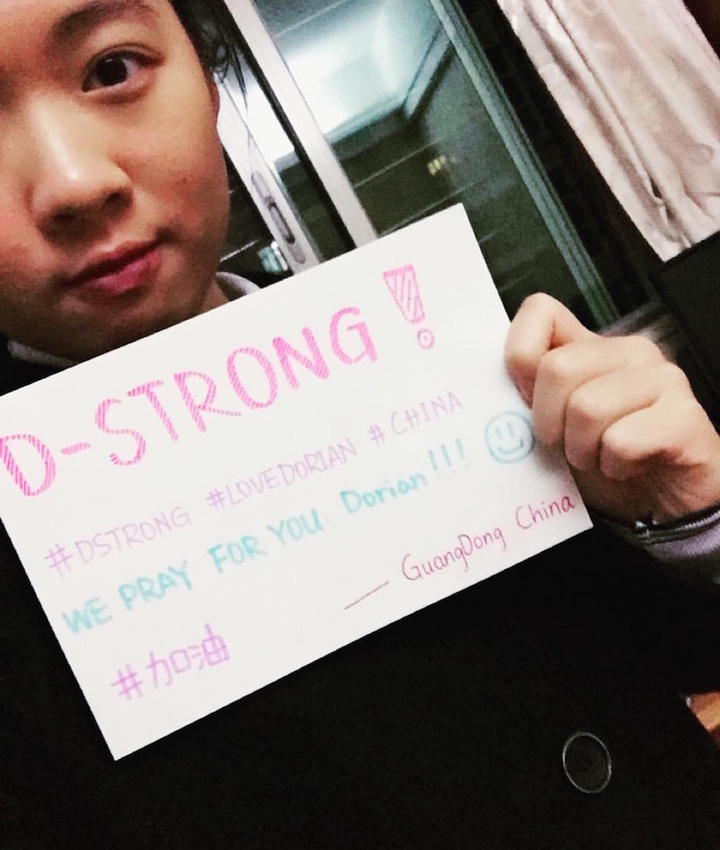 D-STRONG!
#DSTRONG #LOVEDORIAN #CHINA
WE PRAY FOR YOU Dorian!!!
— GuangDong China
#加油